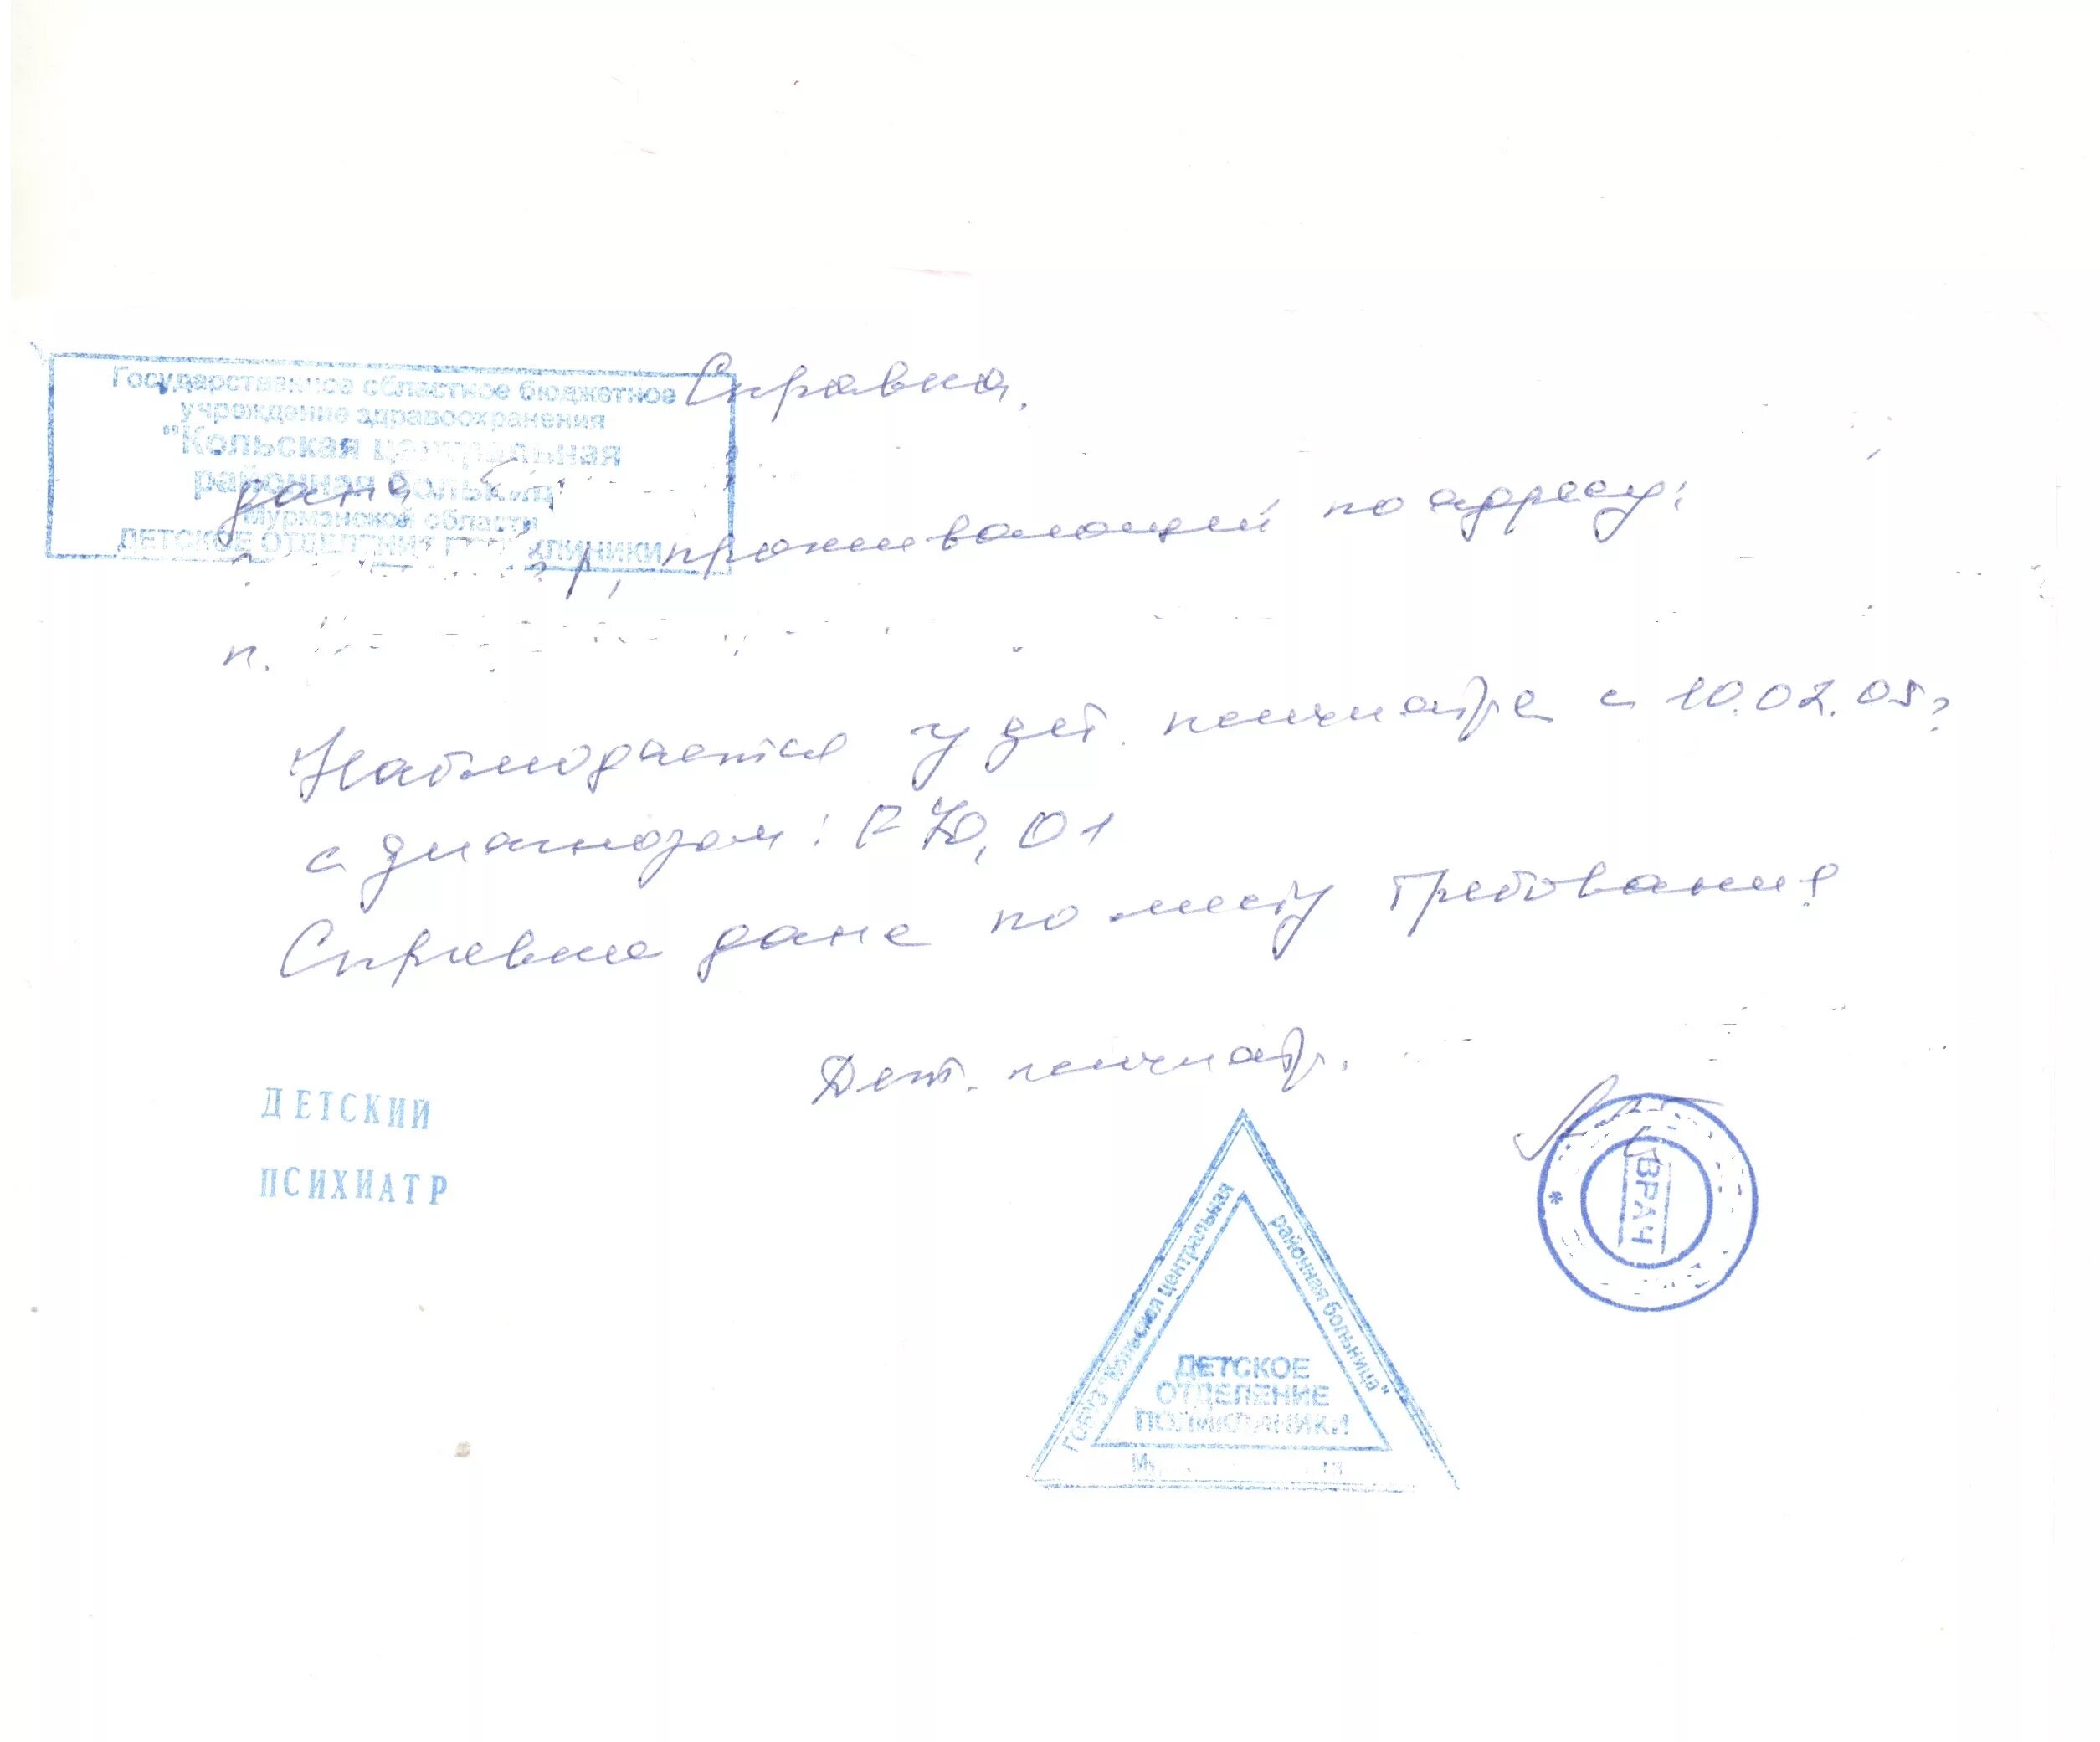 Государственное областное бюджетное
учреждение здравоохранения
"Кольская центральная
районная больница"
Мурманской области
ДЕТСКОЕ ОТДЕЛЕНИЕ ПОЛИКЛИНИКИ
Справка.
дана
г.р., проживающей по адресу:
п.
Наблюдается у дет. психиатра с 10.02.05г
с диагнозом: F 70,01
Справка дана по месту требования
Дет. психиатр.
ДЕТСКИЙ
ПСИХИАТР
ГОБУЗ "Кольская центральная
районная больница"
ДЕТСКОЕ
ОТДЕЛЕНИЕ
ПОЛИКЛИНИКИ
ВРАЧ